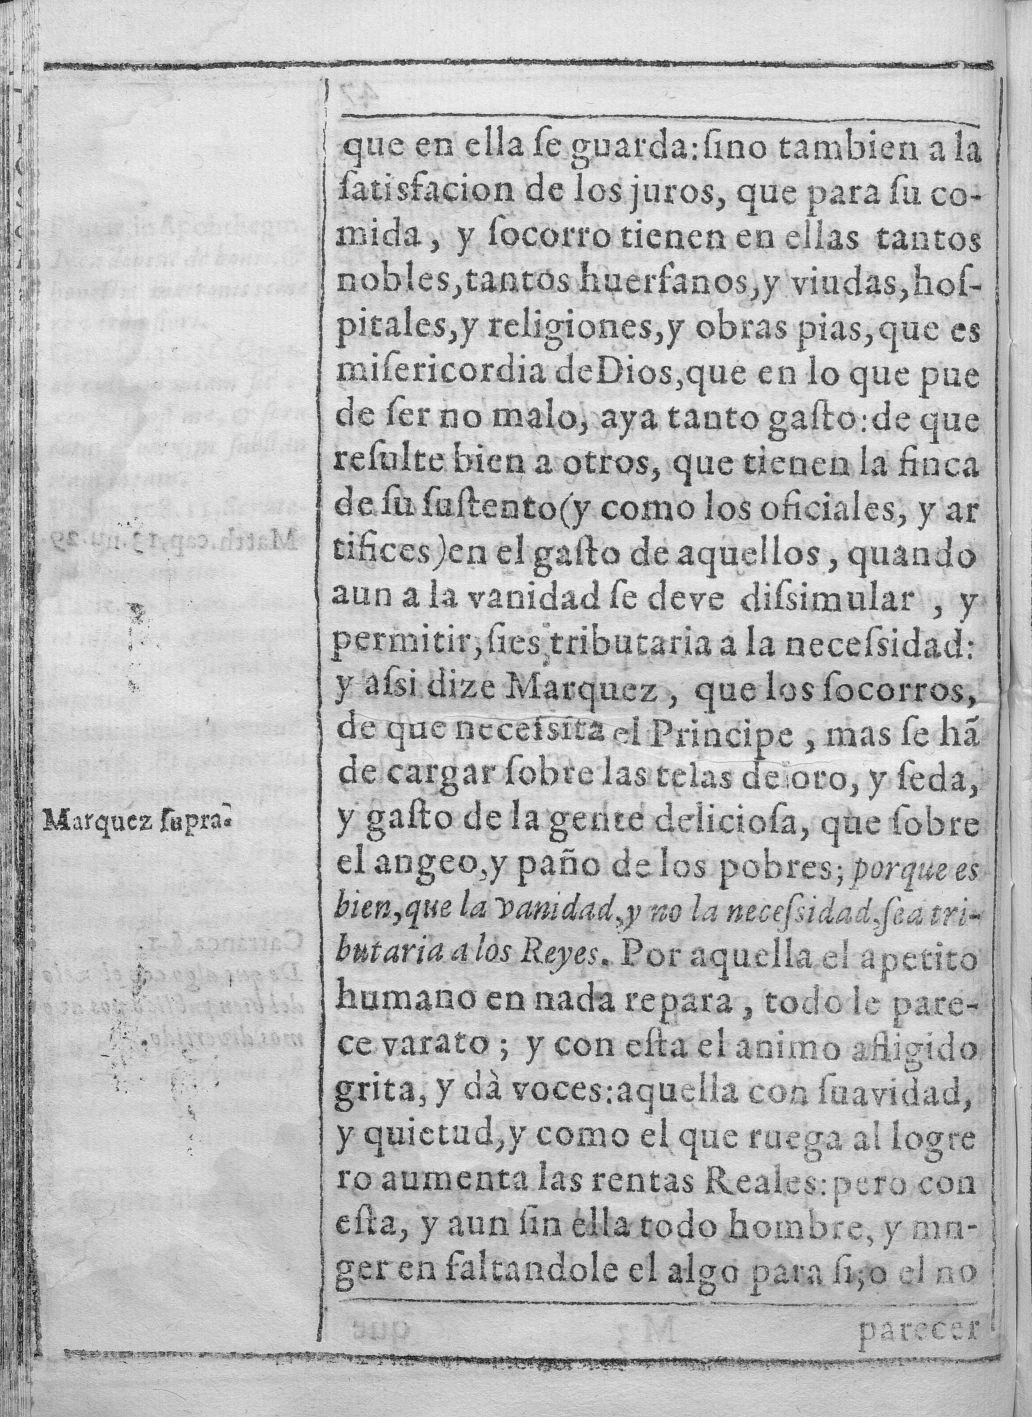 que en ella ſe guarda: ſino tambien a la
ſatisfacion de los juros, que para ſu co-
mida, y ſocorro tienen en ellas tantos
nobles, tantos huerfanos, y viudas, hoſ-
pitales, y religiones, y obras pias, que es
miſericordia de Dios, que en lo que pue
de ſer no malo, aya tanto gaſto: de que
reſulte bien a otros, que tienen la finca
de ſu ſuſtento (y como los oficiales, y ar
tifices) en el gaſto de aquellos, quando
aun a la vanidad ſe deve diſsimular, y
permitir, ſi es tributaria a la neceſsidad:
y aſsi dize Marquez, que los ſocorros,
de que neceſsita el Principe, mas ſe hã
de cargar ſobre las telas de oro, y ſeda,
Marquez ſupra.
y gaſto de la gente delicioſa, que ſobre
el angeo, y paño de los pobres; porque es
bien, que la vanidad, y no la neceſsidad, ſea tri-
butaria a los Reyes. Por aquella el apetito
humano en nada repara, todo le pare-
ce varato; y con eſta el animo afligido
grita, y dà voces: aquella con ſuavidad,
y quietud, y como el que ruega al logre
ro aumenta las rentas Reales: pero con
eſta, y aun ſin ella todo hombre, y mu-
ger en faltandole el algo para ſi, o el no
parecer